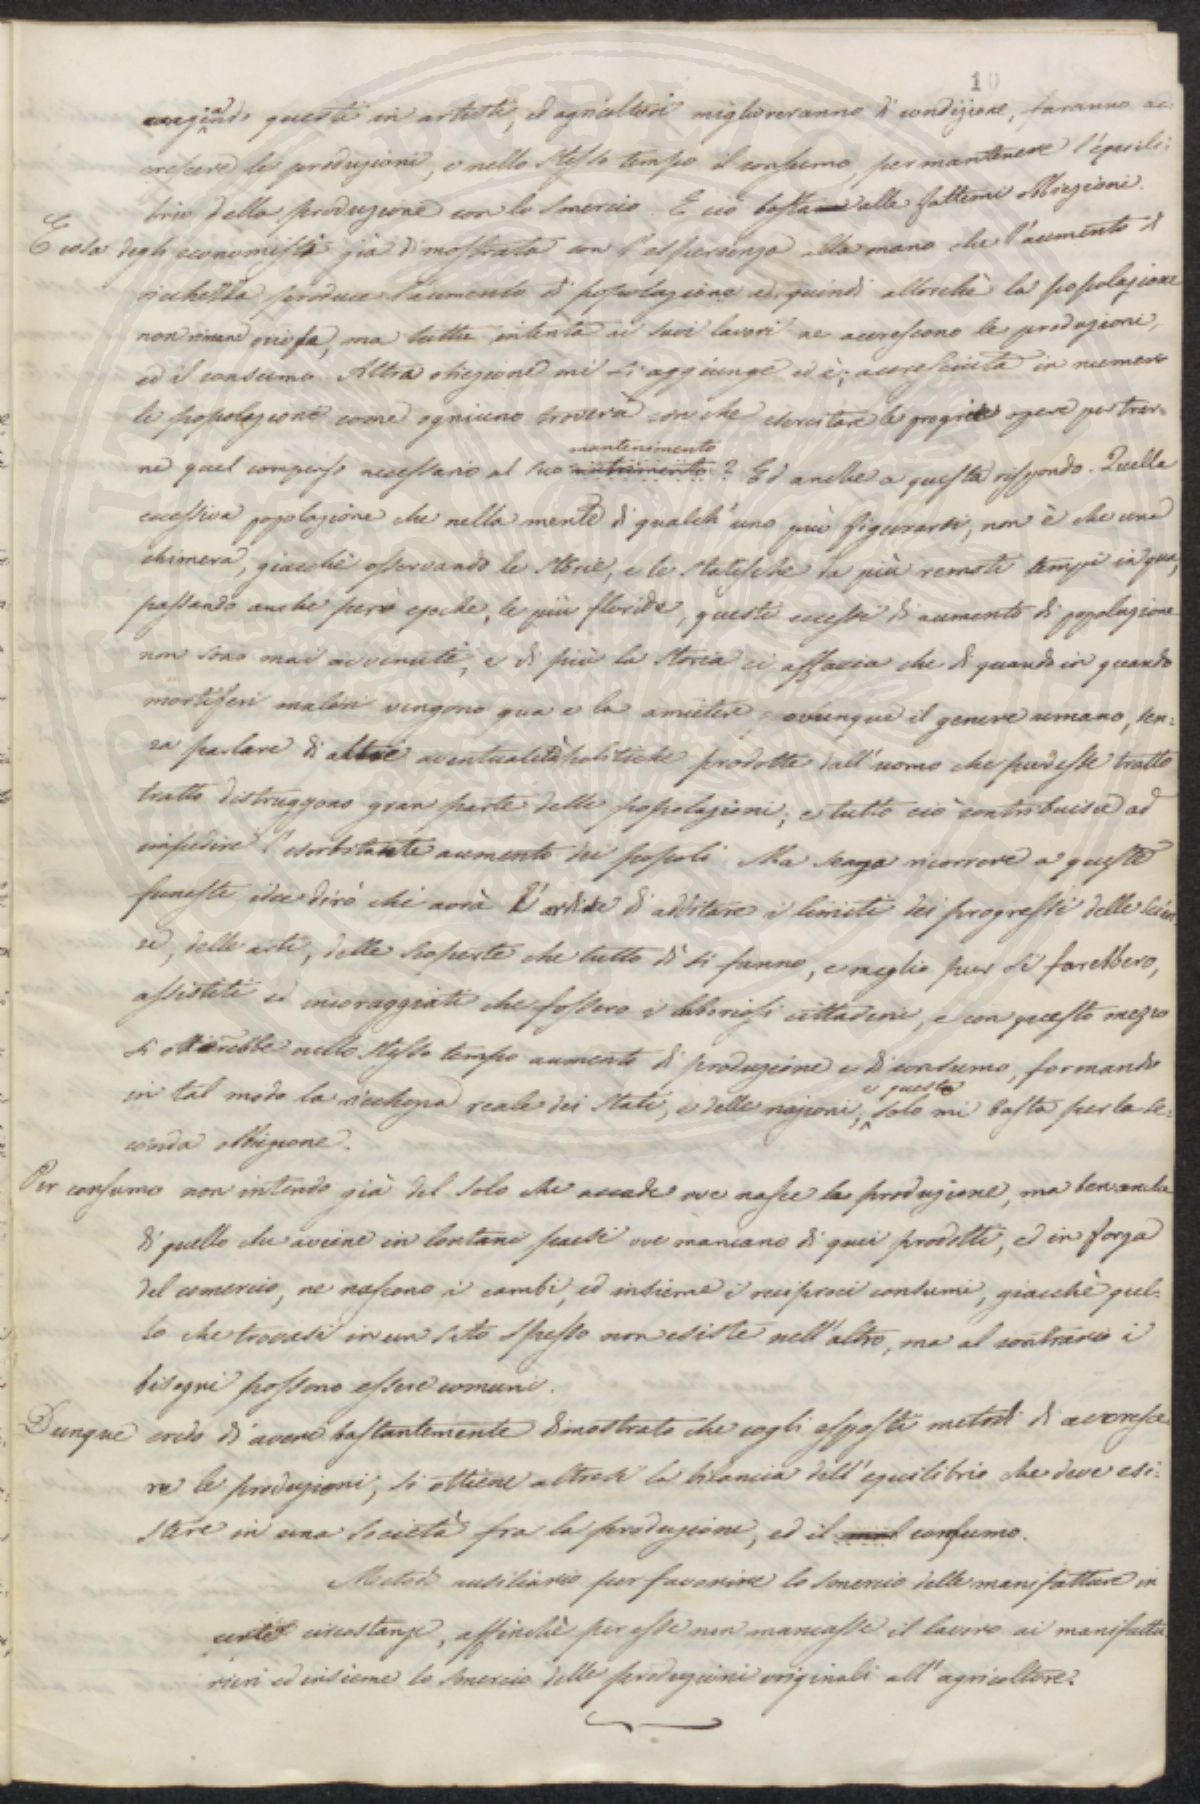 10
questi in artisti, ed agricoltori miglioreranno di condizione, faranno ac=
crescere le produzioni, e nello stesso tempo il consumo per mantenere l'equili=
brio della produzione con lo smercio. E ciò basta alle fattemi obbiezioni.
E cosa degli economisti già dimostrata con l'esperienza alla mano che l'aumento di
ricchezza produce l'aumento di popolazione e quindi allorchè la popolazione
non rimane oziosa, ma tutta intenta ai suoi lavori ne accrescono le produzioni,
ed il consumo. Altra obiezione mi si aggiunge ed è; accresciuta in numero
la popolazione come ogniuno troverà con che esercitare le proprie opere per trar=
ne quel compenso necessario al suo mantenimento? Ed anche a questa rispondo. Quella
eccessiva popolazione che nella mente di qualch'uno può figurarsi, non è che una
chimera, giacchè osservando le storie, e le statistiche da più remoti tempi in qua,
passando anche però epoche, le più floride, questi eccessi di aumento di popolazione
non sono mai avvenuti, e di più la storia ci affaccia che di quando in quando
mortiferi malori vengono qua e la a mietere ovunque il genere umano, sen=
za parlare di altre eventualità politiche prodotte dall'uomo che pur esse tratto
tratto distruggono gran parte delle popolazioni; e tutto ciò contribuisce ad
impedire l'esorbitante aumento dei popoli. Ma senza ricorrere a queste
funeste idee dirò chi avrà l'ardire di additare i limiti dei progressi delle scien=
ze, delle arti, delle scoperte che tutto dì si fanno, e meglio pur si farebbero,
assistiti ed incoraggiati che fossero i laboriosi cittadini, e con questo mezzo
si otterrebbe nello stesso tempo aumento di produzione e di consumo, formando
in tal modo la ricchezza reale dei stati, e delle nazioni; e questo solo mi basta per la se=
conda obbiezione.
Per consumo non intendo già del solo che accade ove nasce la produzione, ma ben anche
di quello che aviene in lontani paesi ove mancano di quei prodotti, ed in forza
del comercio, ne nascono i cambi, ed insieme i reciproci consumi, giacchè quel=
lo che trovasi in un sito spesso non esiste nell'altro, ma al contrario i
bisogni possono essere comuni.
Dunque credo di avere bastantemente dimostrato che cogli esposti metodi di accresce=
re le produzioni, si ottiene altresì la bilancia dell'equilibrio che deve esi=
stere in una società fra la produzione, ed il consumo.
Metodo ausiliario per favorire lo smercio delle manifatture in
certe circostanze, affinchè per esse non mancasse il lavoro ai manifattu
rieri ed insieme lo smercio delle produzioni originali all'agricoltore?